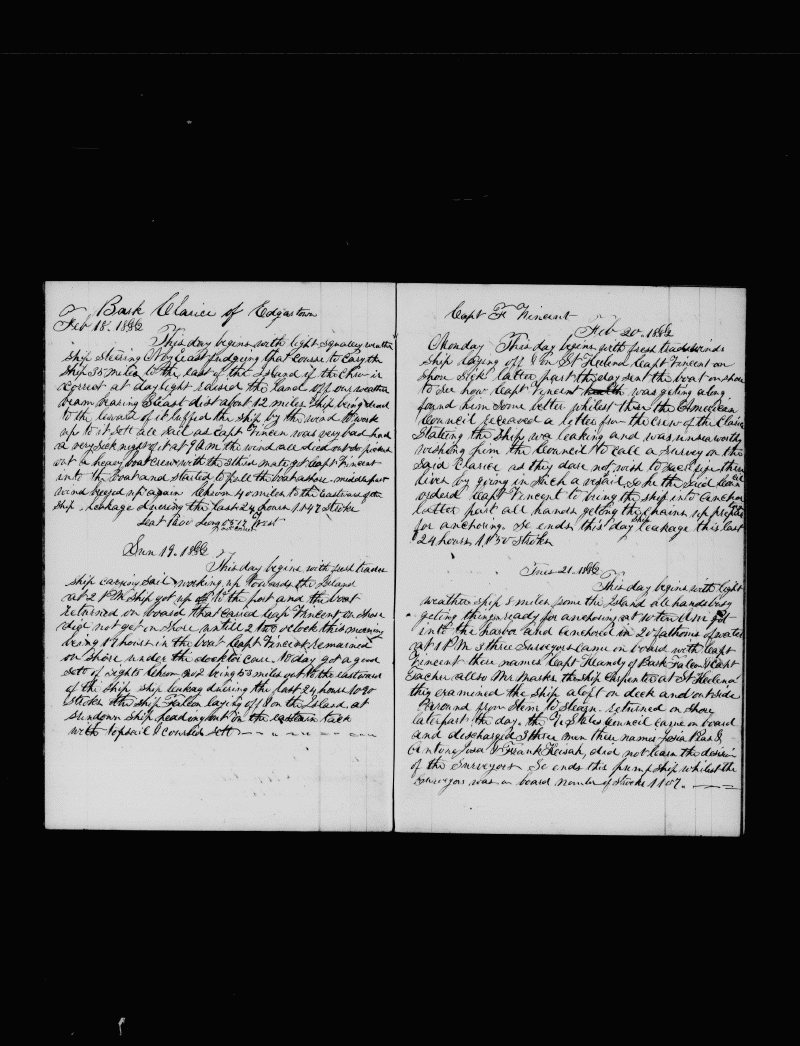 Bark Clarice of Edgartown
Feb 18. 1882
This day begins with light squaley weather
ship stearing N by east judging that course to cary the
ship 35 miles to the east of the Island if the Chro is
correct at daylight raised the land off our weather
beam bearing S least dist about 12 miles ship being
to the leward of it luffed the ship by the wind to work
up to it sett all sail as Capt Vincen was very bad had
a very sick night of it at 9 A m the wind all died out so picked
out a heavy boat crew with the third mate got Capt Vincent
into the boat and started to pull the boat ashore middle part
wind breezed up again Chrom 40 miles to the Eastward of the
Ship. Leakage during the last 24 hours 1147 Stroke
Leat Long West
Sun 19. 1882
This day begins with fresh trades
ship carrying sail working up towards the Island
at 2 P M ship got up off to the port and the boat
returned on board that caried Capt Vincent on shore
dide not get on shore untill 2 two oclock this morning
being 17 hours in the boat Capt Vincent remained
on Shore under the docktor care. To day got a good
sett of sights Chrom no 2 being 53 miles out to the eastward
of the ship ship leakag during the last 24 hours 1090
stroke the ship Falcon laying off & on the Island at
sundown ship heading out on the eastarn tack
with topsail & courses sett
Capt F Vincent
Feb 20. 1882
Monday This day begins with fresh trade winds
ship laying off & on St Heelena Capt Vincent on
shore sick latter part the day sent the boat on shore
to see how Capt Vincent was geting along
found him some better whilest thar the American
Council receaved a letter from the crew of the Clarice
Stating the ship wa leaking and was unseaworthy
wishing him the Council to call a survey on the
Said Clarice as they dare not wish to their
lives by going in such a vessil. so he the said
orderd Capt Vincent to bring the ship into anchor
latter part all hands geting the chains up
for anchoring. So ends this day ship leakage this last
24 hours 1130 strokes
Tues 21. 1882
This day begins with light
weather ship 8 miles from the Island all hands busy
geting things ready for anchoring at to ten A m got
into the harbor and anchored in 20 fathoms of water
at 1 P M 3 three Surveyors came on board with Capt
Vincent their names Capt Handy of Bark Falcon & Capt
allso Mr Marks the ship Carpenter at St Heelena
they examened the ship aloft on deck and outside
around from stem to stearn. returned on shore
laterpart the day the U States Council came on board
and discharged 3 three men their names Josia
& Frank did not learn the desision
of the Surveyors So ends this pump ship whilst the
Surveyors was on board number of stroke 1107.